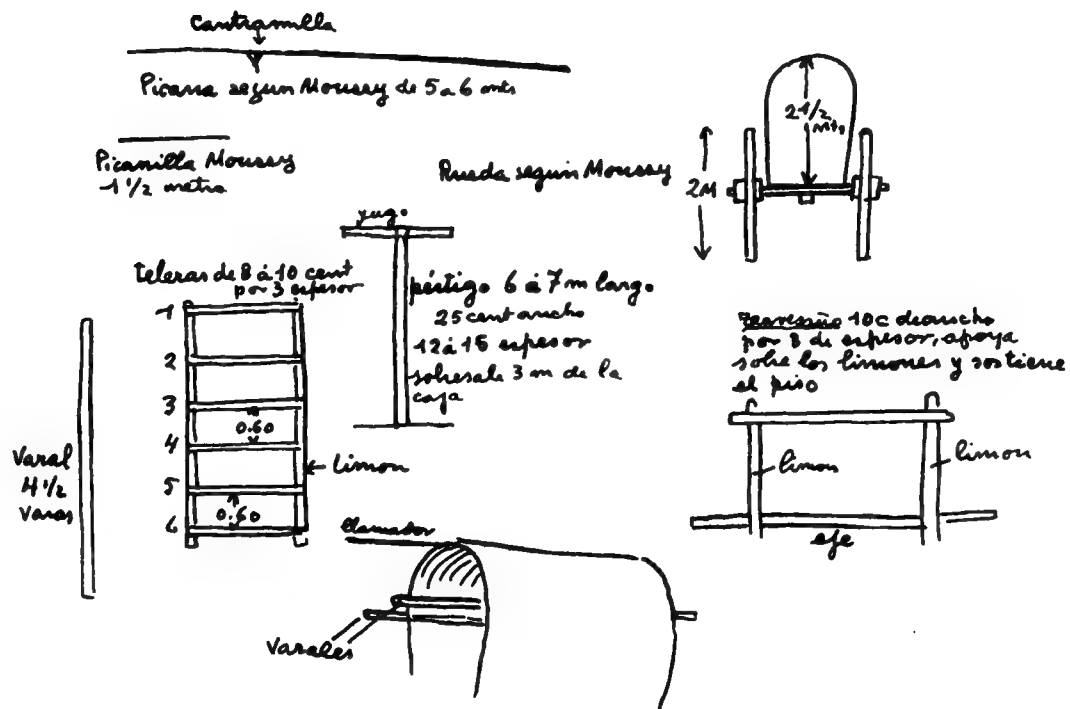 Cantramilla
Picana segun Moussy de 5 a 6 mts
Picanilla Moussy
1 1/2 metro
Rueda segun Moussy
2 1/2
mts
2M
yugo
teleras de 8 á 10 cent
por 3 espesor
1
2
3
4
5
6
0.60
0.60
limon
Varal
4 1/2
varas
pértigo 6 á 7 m largo
25 cent ancho
12 á 15 espesor
sobresale 3 m de la
caja
10 c de ancho
por 8 de espesor, apoya
sobre los limones y sostiene
el piso
limon
limon
eje
llamador
Varales